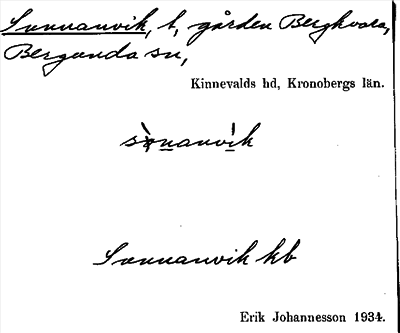 Sunnanvik, t, gården Bergkvara,
Bergunda sn,
Kinnevalds hd, Kronobergs län.
Sunnanvik kb
Erik Johannesson 1934.